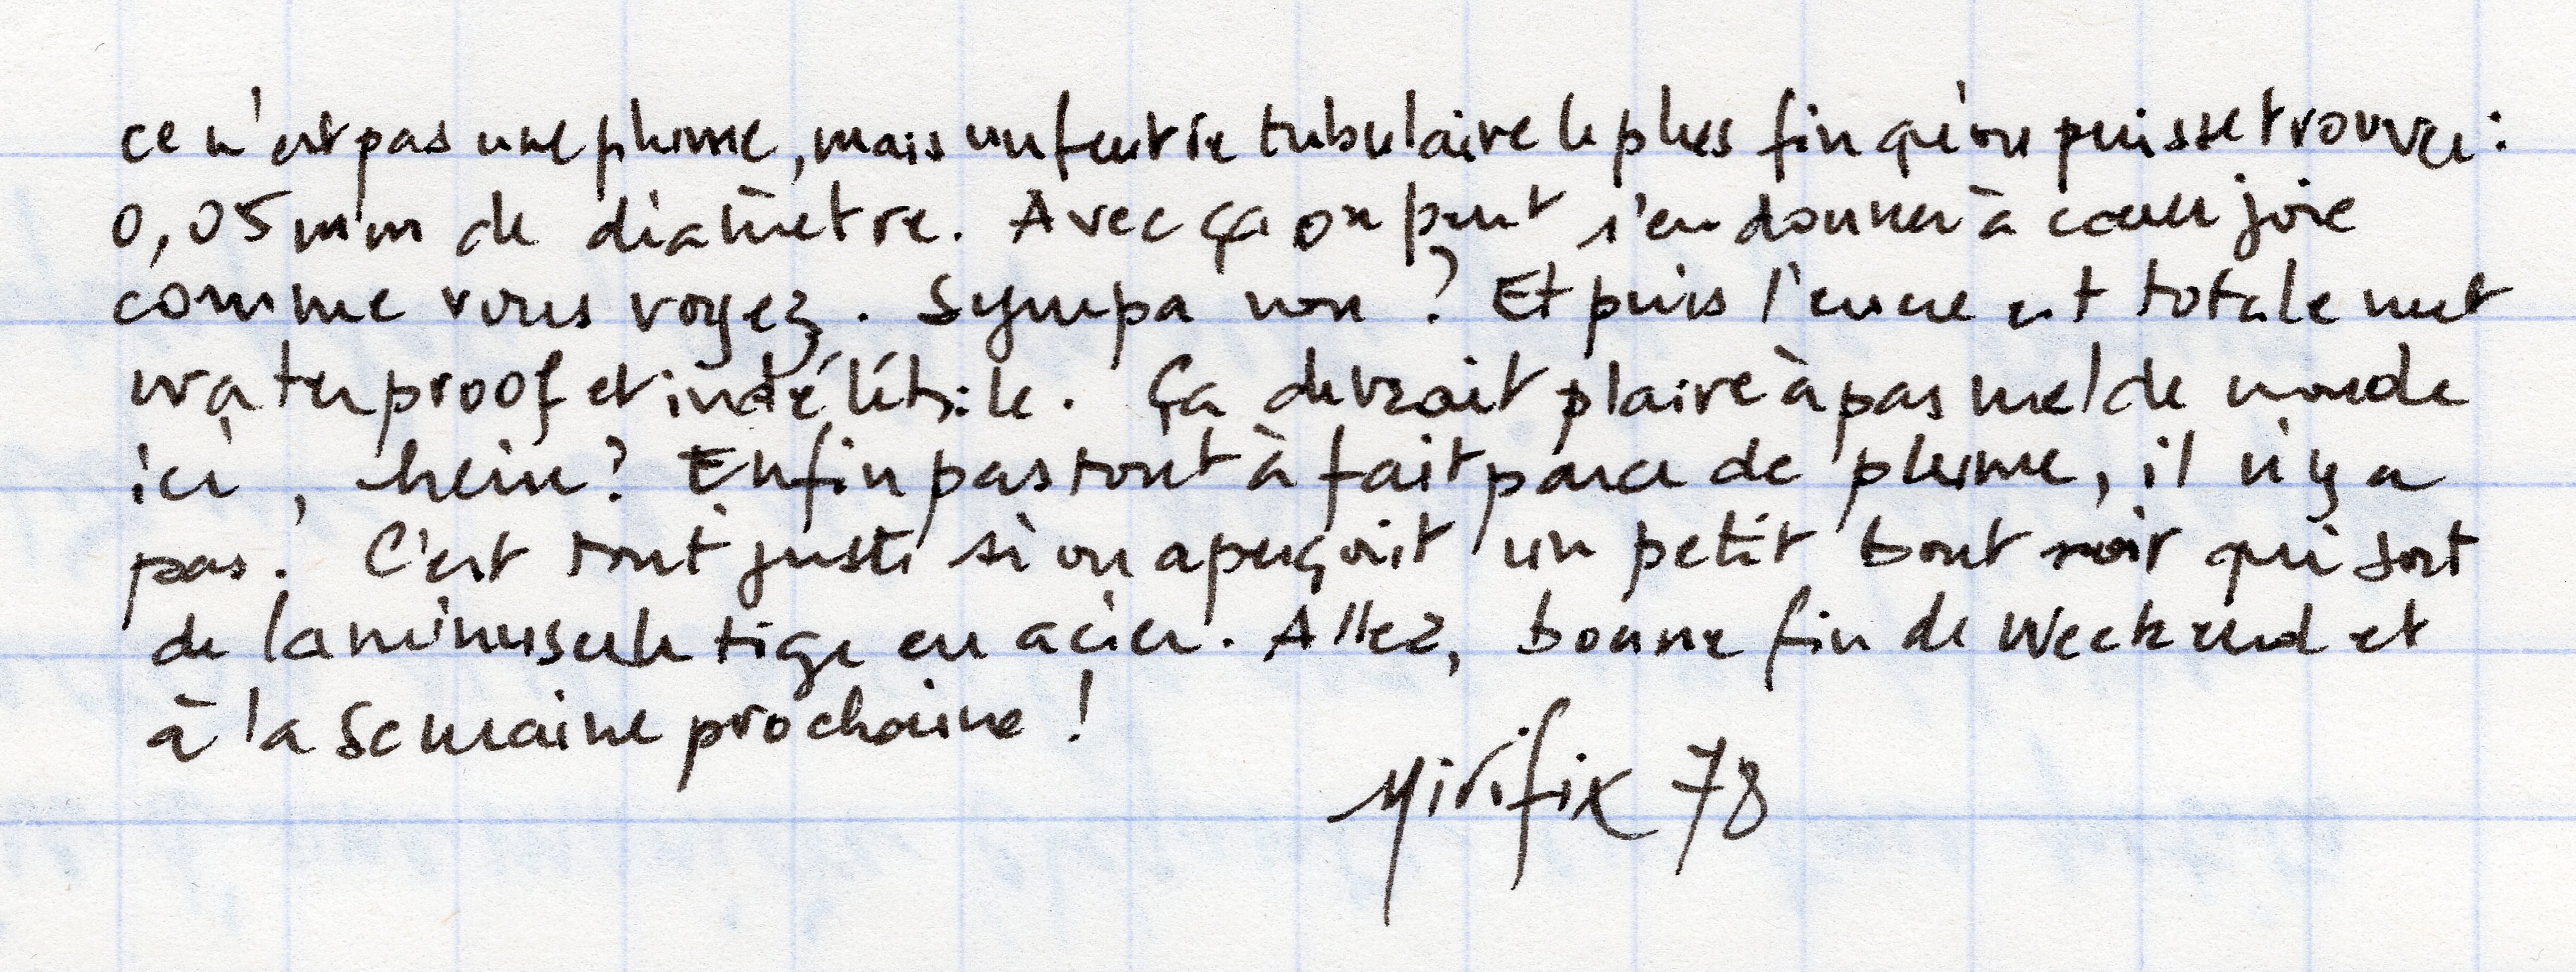 ce n'est pas une plume, mais un feutre tubulaire le plus fin qu'on puisse trouver :
0,05 mm de diamètre. Avec ça on peut s'en donner à cœur joie
comme vous voyez. Sympa non ? Et puis l'encre est totalement
waterproof et indélébile. Ça devrait plaire à pas mel de monde
ici, hein ? Enfin pas tout à fait parce de plume, il n'y a
pas. C'est tout juste si on aperçoit un petit bout noir qui sort
de la minuscule tige en acier. Allez, bonne fin de Week end et
à la semaine prochaine !
Mirifix 78